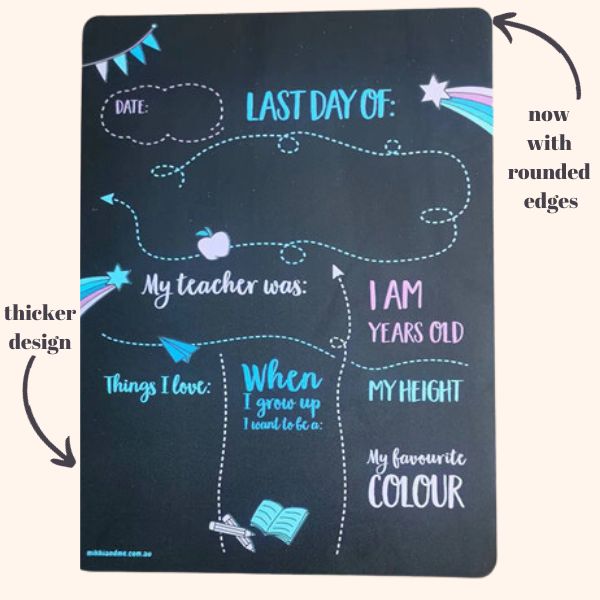 DATE:
LAST DAY OF:
now
with
rounded
edges
My teacher was:
I AM
YEARS OLD
thicker
design
Things I love:
When
I grow up
I want to be a:
MY HEIGHT
My favourite
COLOUR
mikkiandme.com.au